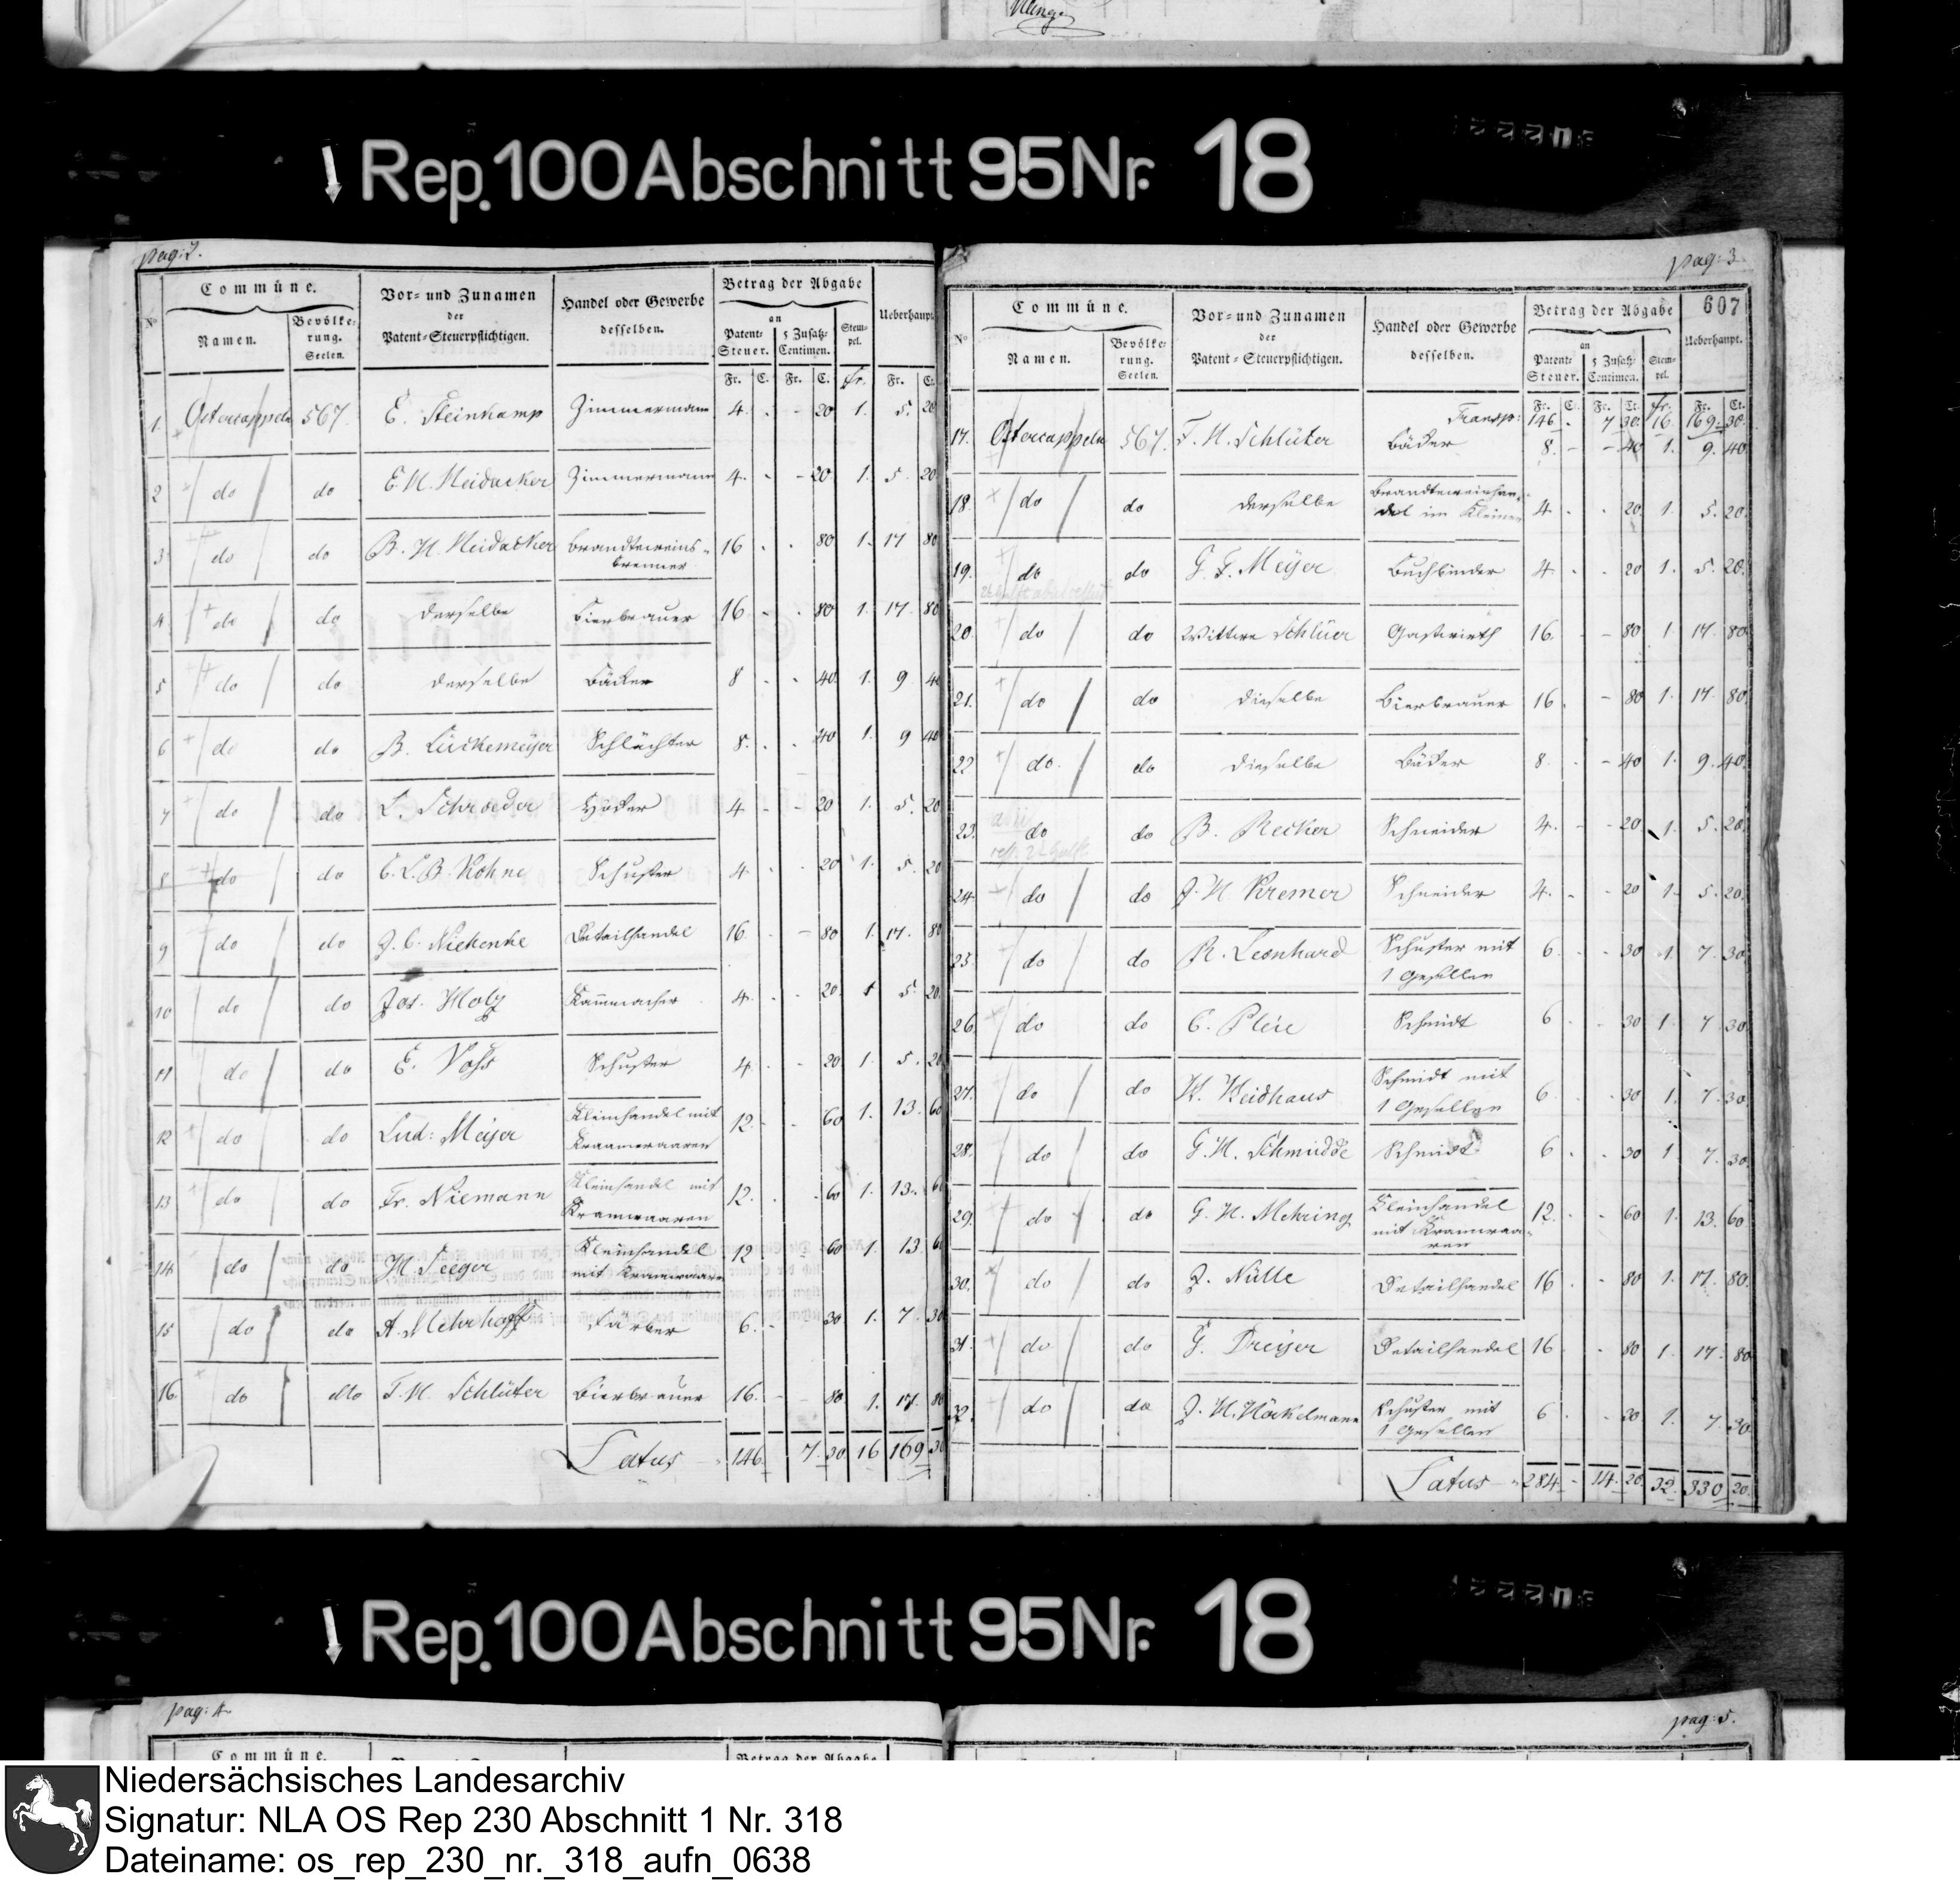 ↓ Rep. 100 Abschnitt 95 Nr. 18
pag: 2.
Commüne. Vor- und Zunamen der Patent-Steuerpflichtigen. Handel oder Gewerbe desselben. Betrag der Abgabe Ueberhaupt.
No Namen. Bevölkerung. Seelen. an Patent-Steuer. 5 Zusatz-Centimen. Stempel.
Fr. C. Fr. C. Fr. Fr. Ct.
1. Ostercappeln 567 E. Steinkamp Zimmermann 4. - 20 1. 5. 20
2 do do E. H. Heidacker Zimmermann 4. - 20 1. 5 20
3 do do B. H. Heidacker Brandtweins-
brenner 16 80 1. 17 80
4 do do Derselbe Bierbrauer 16 80 1. 17 80
5 do do Derselbe Bäcker 8 40 1. 9 40
6 do do B. Lückemeÿer Schlächter 8. 40 1. 9 40
7 do do L. Schroeder Höcker 4 - 20 1. 5. 20
8 do do C. L. B. Kohne Schuster 4 20 1. 5. 20
9 do do J. C. Niekenke Detailhandel 16 - 80 1. 17. 80
10 do do Jos. Holz Kammacher 4. 20 1 5. 20
11 do do E. Voss Schuster 4. - 20 1. 5. 20
12 do do Lud: Meÿer Kleinhandel mit
Kraamwaaren 12. - 60 1. 13. 60
13 do do Fr. Niemann Kleinhandel mit
Kramwaaren 12. - 60 1. 13. 60
14 do do H. Seeger Kleinhandel
mit Kramwaaren 12 - 60 1. 13 60
15 do do A. Mehrhoff Färber 6. - 30 1. 7. 30
16. do dto F. M. Schlüter Bierbrauer 16. - 80 1. 17. 80
Latus 146. 7. 30 16 169 30
pag: 3.
607
Commüne. Vor- und Zunamen der Patent-Steuerpflichtigen. Handel oder Gewerbe desselben. Betrag der Abgabe Ueberhaupt.
No Namen. Bevölkerung. Seelen. an Patent-Steuer. 5 Zusatz-Centimen. Stempel.
Fr. C. Fr. Ct. Fr. Fr. Ct.
Transp: 146 - 7 30. 16 169. 30.
17. Ostercappeln 567. F. M. Schlüter Bäcker 8. - - 40 1. 9. 40
18. do do Derselbe Brandteweinhan-
del im Kleinen 4 20. 1. 5. 20
19. do do G. F. Meÿer Buchbinder 4 20 1. 5. 20.
20. do do Wittwe Schlüer Gastwirth 16. - 80 1 17. 80
21. do do Dieselbe Bierbrauer 16. - 80 1. 17. 80
22 do. do Dieselbe Bäcker 8 - 40 1. 9. 40
23. do do B. Recker Schneider 4. - 20 1. 5. 20
24 do do J. H Kremer Schneider 4. - 20 1. 5. 20.
25. do do R. Leonhard Schuster mit
1 Gesellen 6 - 30 1. 7. 30
26. do do C. Pleie Schmidt 6 30 1. 7. 30
27. do do W. Weidhaus Schmidt mit
1 Gesellen 6 30 1. 7. 30
28. do do G. H. Schmidde Schmidt 6 30 1 7. 30.
29. do do G. H. Mehring Kleinhandel
mit Kramwaa-
ren 12. 60 1. 13. 60
30. do do J. Nülle Detailhandel 16 80 1. 17. 80.
31. do do G. Dreÿer Detailhandel 16 80 1. 17. 80
32. do do J. H. Höckelmann Schuster mit
1 Gesellen 6 30 1. 7. 30
Latus 284. - 14. 20. 32. 330. 20.
↓ Rep. 100 Abschnitt 95 Nr. 18
pag: 4.
pag: 5.
Commüne.
Betrag der Abgabe
Niedersächsisches Landesarchiv
Signatur: NLA OS Rep 230 Abschnitt 1 Nr. 318
Dateiname: os_rep_230_nr._318_aufn_0638